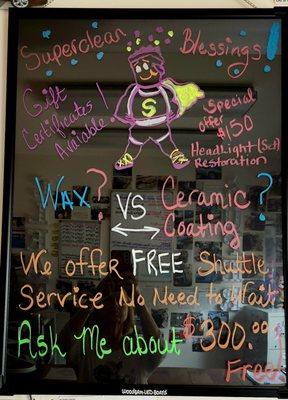 Superclean Blessings
Gift
Certificates!
Available
S
Special
offer
$150
HeadLight (Set)
Restoration
Wax? VS Ceramic?
Coating
We offer FREE Shuttle
Service No Need to Wait!
Ask Me about $300.00
Free!
Woodsam LED Boards